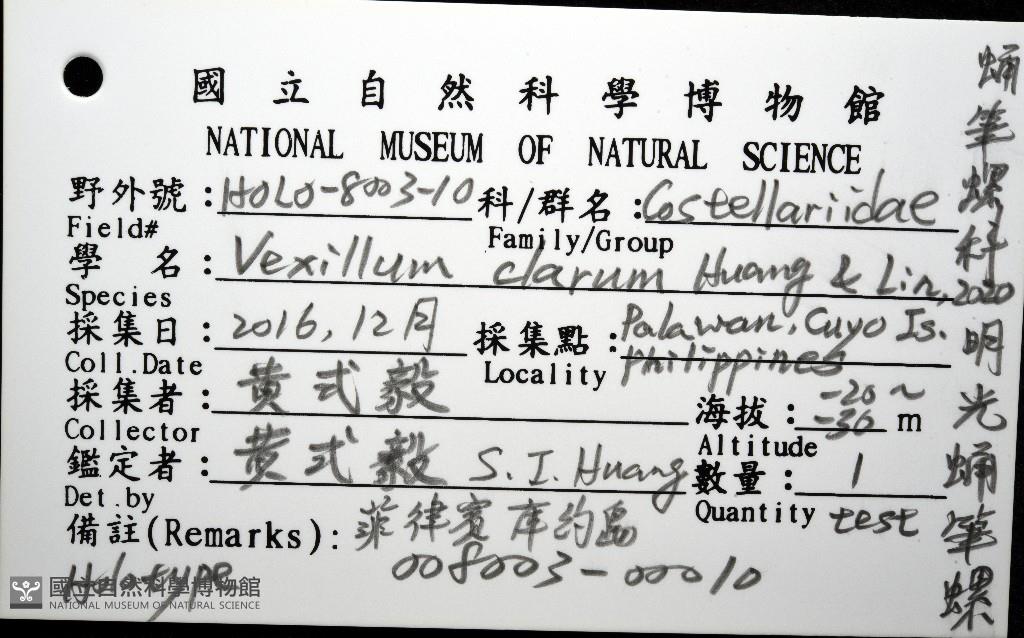 國立自然科學博物館
NATIONAL MUSEUM OF NATURAL SCIENCE
野外號：HOLO-8003-10 科/群名：Costellariidae
Field# Family/Group
學名：Vexillum clarum Huang & Lin, 2020
Species
採集日：2016, 12月 採集點：Palawan, Cuyo Is. Philippines
Coll.Date Locality
採集者：黃式毅 海拔：-20~-30 m
Collector Altitude
鑑定者：黃式毅 S. I. Huang 數量：1
Det.by Quantity test
備註(Remarks)：菲律賓 庫約島
Holotype 008003-00010
蛹筆螺科 明光蛹筆螺
國立自然科學博物館
NATIONAL MUSEUM OF NATURAL SCIENCE